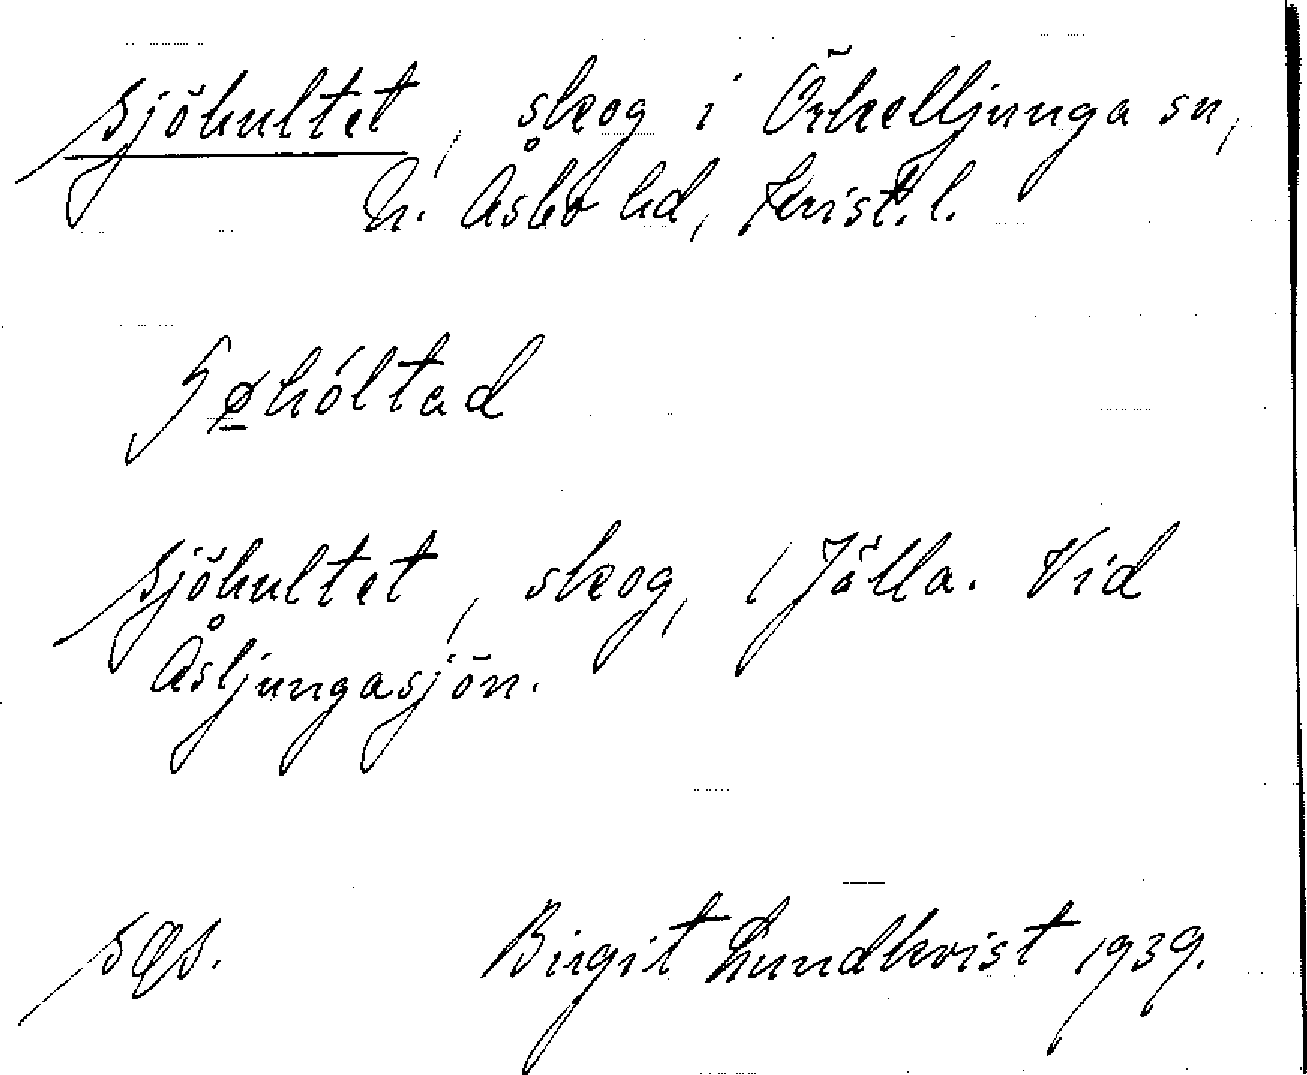 Sjöhultet, skog i Örkelljunga sn,
N. Åsbo hd, Krist. l.
ʃøhóltad
Sjöhultet, skog, i Jälla. Vid
Åsljungasjön.
sgs. Birgit Lundkvist 1939.